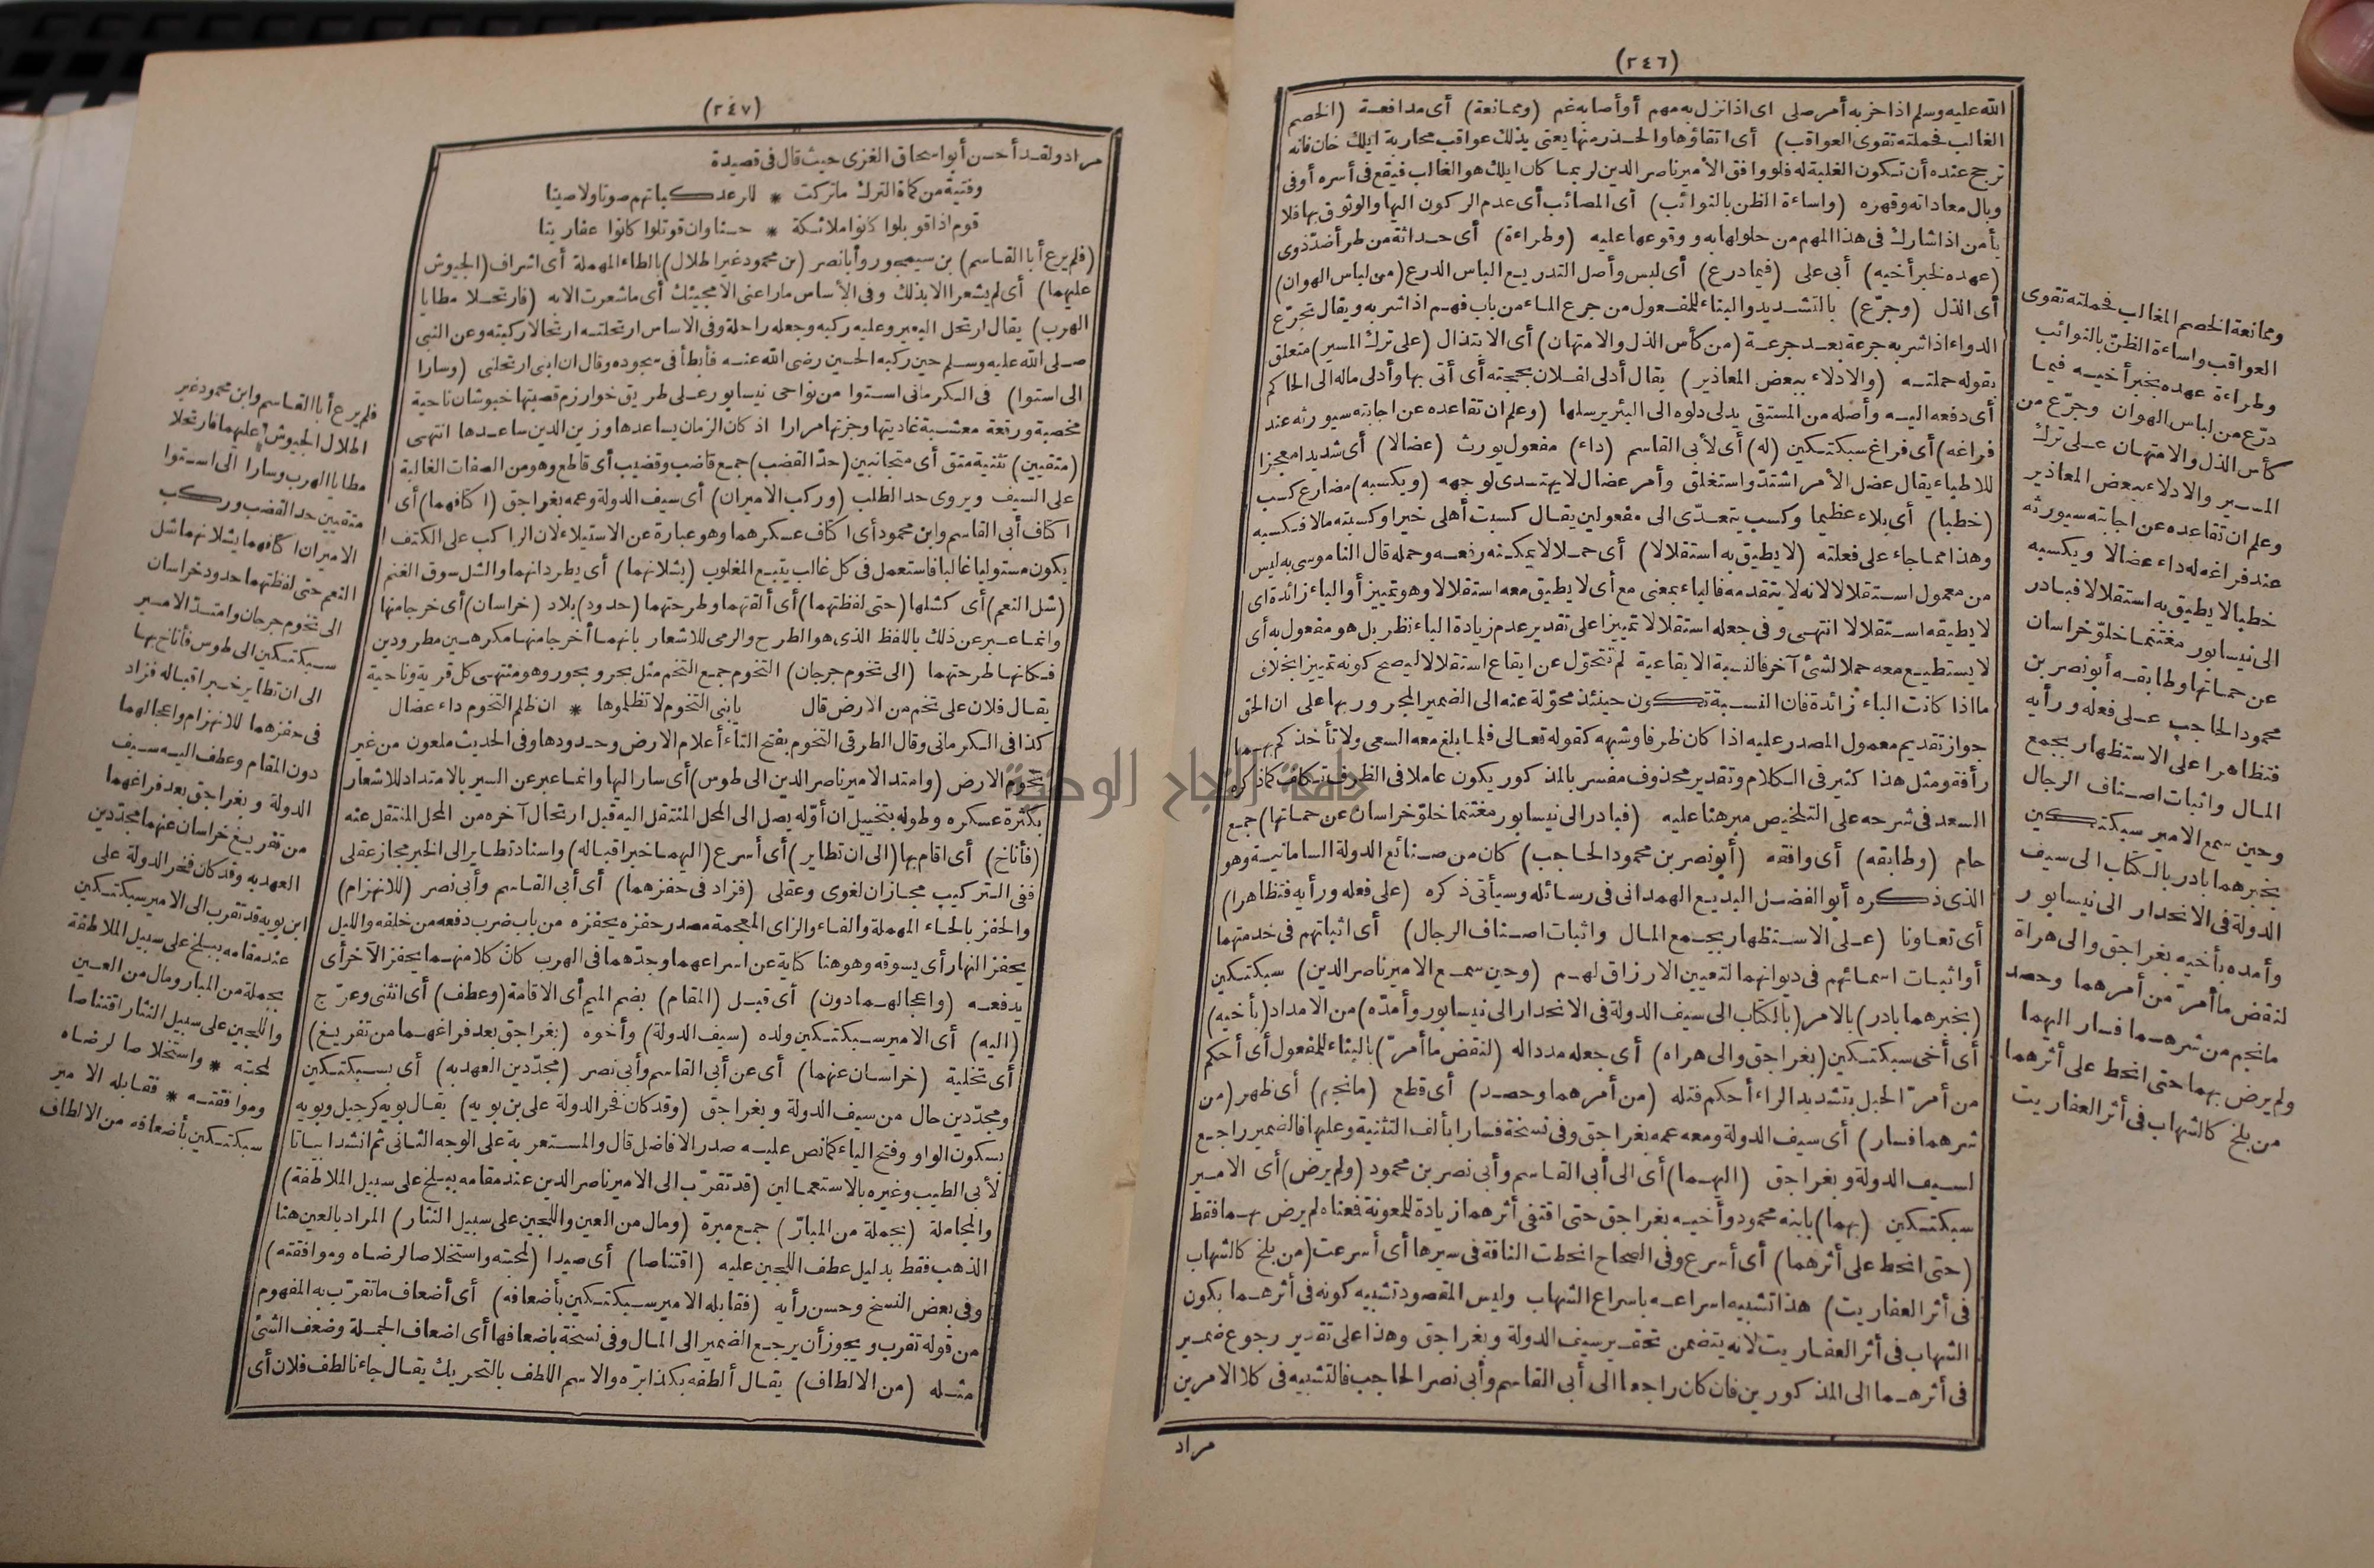 (٢٤٦)
الله عليه وسلم اذا حز به أمر صلى اى اذا نزل به مهم أو أصابه غم (وممانعة) أى مدافعة (الخصم
الغالب فحملته تقوى العواقب) أى اتقاؤها والحذر منها يعنى بذلك عواقب محاربة ايلك خان فانه
ترجح عنده أن تكون الغلبة له فلو وافق الأمير ناصر الدين لربما كان ايلك هو الغالب فيقع فى أسره أو فى
وبال معاداته وقهره (واساءة الظن بالنوائب) أى المصائب أى عدم الركون اليها والوثوق بها فلا
يأمن اذا شارك فى هذا المهم من حلولها به ووقوعها عليه (وطراءة) أى حداثة من طرأ ضد ذوى
(عهده بخبر أخيه) أبى على (فيما درع) أى لبس وأصل التدريع الباس الدرع (من لباس الهوان)
أى الذل (وجرّع) بالتشديد والبناء للمفعول من جرع الماء من باب فهم اذا شربه ويقال تجرّع
الدواء اذا شربه جرعة بعد جرعة (من كأس الذل والامتهان) أى الابتذال (على ترك المسير) متعلق
بقوله حملته (والادلاء ببعض المعاذير) يقال أدلى فلان بحجته أى أتى بها وأدلى ماله الى الحاكم
أى دفعه اليه وأصله من المستقى يدلى دلوه الى البئر يرسلها (وعلم ان تقاعده عن اجابته سيورثه عند
فراغه) أى فراغ سبكتكين (له) أى لأبى القاسم (داء) مفعول يورث (عضالا) أى شديدا معجزا
للاطباء يقال عضل الأمر اشتدّ واستغلق وأمر عضال لا يهتدى لوجهه (ويكسبه) مضارع كسب
(خطبا) أى بلاء عظيما وكسب تتعدّى الى مفعولين يقال كسبت أهلى خيرا وكسبته مالا فكسبه
وهذا مما جاء على فعلته (لا يطيق به استقلالا) أى حملا لا يمكنه رفعه وحمله قال الناموسى به ليس
من معمول استقلالا لانه لا يتقدمه فالباء بمعنى مع أى لا يطيق معه استقلالا وهو تمييز أو الباء زائدة اى
لا يطيقه استقلالا انتهى وفى جعله استقلالا تمييزا على تقدير عدم زيادة الباء نظر بل هو مفعول به أى
لا يستطيع معه حملا لشئ آخر فالنسبة الايقاعية لم تتحوّل عن ايقاع استقلالا ليصح كونه تمييزا بخلاف
ما اذا كانت الباء زائدة فان النسبة تكون حينئذ محوّلة عنه الى الضمير المجرور بها على ان الحق
جواز تقديم معمول المصدر عليه اذا كان ظرفا وشبهه كقوله تعالى فلما بلغ معه السعى ولا تأخذكم بهما
رأفة ومثل هذا كثير فى الكلام وتقدير محذوف مفسر بالمذكور يكون عاملا فى الظرف تكلف كما ذكره
السعد فى شرحه على التلخيص مبرهنا عليه (فبادر الى نيسابور مغتنما خلوّ خراسان عن حماتها) جمع
حام (وطابقه) أى وافقه (أبو نصر بن محمود الحاجب) كان من صنائع الدولة السامانية وهو
الذى ذكره أبو الفضل البديع الهمدانى فى رسائله وسيأتى ذكره (على فعله ورأيه فتظاهرا)
أى تعاونا (على الاستظهار بجمع المال واثبات اصناف الرجال) أى اثباتهم فى خدمتهما
أو اثبات اسمائهم فى ديوانهما لتعيين الارزاق لهم (وحين سمع الامير ناصر الدين) سبكتكين
(بخبرهما بادر) بالامر (بالكتاب الى سيف الدولة فى الانحدار الى نيسابور وأمدّه) من الامداد (بأخيه)
أى أخى سبكتكين (بغراجق والى هراه) أى جعله مددا له (لنقض ما أمرّ) بالبناء للمفعول أى أحكم
من أمرّ الحبل بتشديد الراء أحكم فتله (من أمرهما وحصد) أى قطع (ما نجم) أى ظهر (من
شرهما فسار) أى سيف الدولة ومعه عمه بغراجق وفى نسخة فسارا بألف التثنية وعليها فالضمير راجع
لسيف الدولة وبغراجق (اليهما) أى الى أبى القاسم وأبى نصر بن محمود (ولم يرض) أى الامير
سبكتكين (بهما) بابنه محمود وأخيه بغراجق حتى اقتفى أثرهما زيادة للمعونة فعناه لم يرض بهما فقط
(حتى انحط على أثرهما) أى أسرع وفى الصحاح انحطت الناقة فى سيرها أى أسرعت (من بلخ كالشهاب
فى أثر العفاريت) هذا تشبيه اسراعه باسراع الشهاب وليس المقصود تشبيه كونه فى أثرهما بكون
الشهاب فى أثر العفاريت لانه يتضمن تحقير سيف الدولة وبغراجق وهذا على تقدير رجوع ضمير
فى أثرهما الى المذكورين فان كان راجعا الى أبى القاسم وأبى نصر الحاجب فالتشبيه فى كلا الامرين
مراد
وممانعة الخصم الغالب فحملته تقوى
العواقب واساءة الظنّ بالنوائب
وطراءة عهده بخبر أخيه فيما
درّع من لباس الهوان وجرّع من
كأس الذل والامتهان على ترك
المسير والادلاء ببعض المعاذير
وعلم ان تقاعده عن اجابته سيورثه
عند فراغه له داء عضالا ويكسبه
خطبا لا يطيق به استقلالا فبادر
الى نيسابور مغتنما خلوّ خراسان
عن حماتها وطابقه أبو نصر بن
محمود الحاجب على فعله ورأيه
فتظاهرا على الاستظهار بجمع
المال واثبات اصناف الرجال
وحين سمع الامير سبكتكين
بخبرهما بادر بالكتاب الى سيف
الدولة فى الانحدار الى نيسابور
وأمده بأخيه بغراجق والى هراة
لنقض ما أمرّ من أمرهما وحصد
ما نجم من شرهما فسار اليهما
ولم يرض بهما حتى انحط على أثرهما
من بلخ كالشهاب فى أثر العفاريت
(٢٤٧)
مراد ولقد أحسن أبو اسحاق الغزى حيث قال فى قصيدة
وفتية من كماة الترك ما تركت * للرعد كباتهم صوتا ولا صيتا
قوم اذا قوبلوا كانوا ملائكة * حسنا وان قوتلوا كانوا عفاريتا
(فلم يرع أبا القاسم) بن سيمجور وأبا نصر (بن محمود غير اطلال) بالطاء المهملة أى اشراف (الجيوش
عليهما) أى لم يشعرا الا بذلك وفى الأساس ما راعنى الا مجيئك أى ما شعرت الا به (فارتحلا مطايا
الهرب) يقال ارتحل البعير وعليه ركبه وجعله راحلة وفى الاساس ارتحلته ارتحالا ركبته وعن النبى
صلى الله عليه وسلم حين ركبه الحسين رضى الله عنه فأبطأ فى سجوده وقال ان ابنى ارتحلنى (وسارا
الى استوا) فى الكرمانى استوا من نواحى نيسابور على طريق خوارزم قصبتها خبوشان ناحية
مخصبة ورقعة معشبة غاديتها وجزتها مرارا اذ كان الزمان يساعدها وزين الدين ساعدها انتهى
(متقيين) تثنية متق أى متجانبين (حدّ القضب) جمع قاضب وقضيب أى قاطع وهو من الصفات الغالبة
على السيف ويروى حد الطلب (وركب الاميران) أى سيف الدولة وعمه بغراجق (اكتافهما) أى
اكتاف أبى القاسم وابن محمود أى اكتاف عسكرهما وهو عبارة عن الاستيلاء لان الراكب على الكتف
يكون مستوليا غالبا فاستعمل فى كل غالب يتبع المغلوب (يشلانهما) أى يطردانهما والشل سوق الغنم
(شل النعم) أى كشلها (حتى لفظتهما) أى ألقتهما وطرحتهما (حدود) بلاد (خراسان) أى خرجا منها
وانما عبر عن ذلك باللفظ الذى هو الطرح والرمى للاشعار بانهما أخرجا منها مكرهين مطرودين
فكانها طرحتهما (الى تخوم جرجان) التخوم جمع التخم مثل بحر وبحور وهو منتهى كل قرية وناحية
يقال فلان على تخم من الارض قال يا بنى التخوم لا تظلموها * ان ظلم التخوم داء عضال
كذا فى الكرمانى وقال الطرقى التخوم بفتح التاء أعلام الارض وحدودها وفى الحديث ملعون من غير
تخوم الارض (وامتد الامير ناصر الدين الى طوس) أى سار اليها وانما عبر عن السير بالامتداد للاشعار
بكثرة عسكره وطوله بتخييل ان أوّله يصل الى المحل المنتقل اليه قبل ارتحال آخره من المحل المنتقل عنه
(فأناخ) أى اقام بها (الى ان تطاير) أى أسرع (اليهما خبر اقباله) واسناد تطاير الى الخبر مجاز عقلى
ففى التركيب مجازان لغوى وعقلى (فزاد فى حفزهما) أى أبى القاسم وأبى نصر (للانهزام)
والحفز بالحاء المهملة والفاء والزاى المعجمة مصدر حفزه يحفزه من باب ضرب دفعه من خلفه والليل
يحفز النهار أى يسوقه وهو هنا كناية عن اسراعهما وجدّهما فى الهرب كان كلا منهما يحفز الآخر أى
يدفعه (واعجالهما دون) أى قبل (المقام) بضم الميم أى الاقامة (وعطف) أى انثنى وعرّج
(اليه) أى الامير سبكتكين ولده (سيف الدولة) وأخوه (بغراجق بعد فراغهما من تفريغ)
أى تخلية (خراسان عنهما) أى عن أبى القاسم وأبى نصر (مجدّدين العهد به) أى بسبكتكين
ومجدّدين حال من سيف الدولة وبغراجق (وقد كان فخر الدولة على بن بويه) يقال بويه كرجيل وبويه
بسكون الواو وفتح الياء كما نص عليه صدر الافاضل قال والمستعربة على الوجه الثانى ثم انشد ابياتا
لأبى الطيب وغيره بالاستعمالين (قد تقرّب الى الامير ناصر الدين عند مقامه ببلخ على سبيل الملاطفة)
والمجاملة (بجملة من المبارّ) جمع مبرة (ومال من العين واللجين على سبيل النثار) المراد بالعين هنا
الذهب فقط بدليل عطف اللجين عليه (اقتناصا) أى صيدا (لمحبته واستخلاصا لرضاه وموافقته)
وفى بعض النسخ وحسن رأيه (فقابله الامير سبكتكين بأضعافه) أى أضعاف ما تقرّب به المفهوم
من قوله تقرب ويجوز أن يرجع الضمير الى المال وفى نسخة باضعافها أى اضعاف الجملة وضعف الشئ
مثله (من الالطاف) يقال ألطفه بكذا برّه والاسم اللطف بالتحريك يقال جاءنا لطف فلان أى
فلم يرع أبا القاسم وابن محمود غير
اطلال الجيوش عليهما فارتحلا
مطايا الهرب وسارا الى استوا
متقيين حد القضب وركب
الاميران اكتافهما يشلانهما شل
النعم حتى لفظتهما حدود خراسان
الى تخوم جرجان وامتدّ الامير
سبكتكين الى طوس فأناخ بها
الى ان تطاير خبر اقباله فزاد
فى حفزهما للانهزام واعجالهما
دون المقام وعطف اليه سيف
الدولة وبغراجق بعد فراغهما
من تفريغ خراسان عنهما مجدّدين
العهد به وقد كان فخر الدولة على
ابن بويه قد تقرب الى الامير سبكتكين
عند مقامه ببلخ على سبيل الملاطفة
بجملة من المبار ومال من العين
واللجين على سبيل النثار اقتناصا
لمحبته * واستخلاصا لرضاه
وموافقته * فقابله الامير
سبكتكين بأضعافه من الالطاف
جامعة النجاح الوطنية